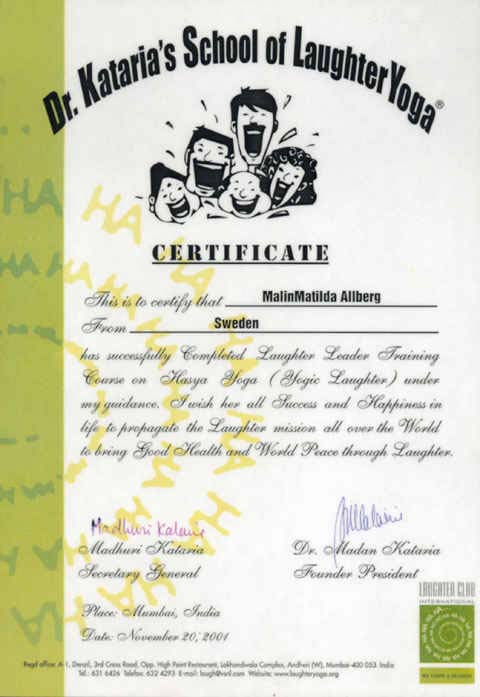 Dr. Kataria's School of Laughter Yoga®
CERTIFICATE
This is to certify that MalinMatilda Allberg
From Sweden
has successfully Completed Laughter Leader Training
Course on Hasya Yoga (Yogic Laughter) under
my guidance. I wish her all Success and Happiness in
life to propagate the Laughter mission all over the World
to bring Good Health and World Peace through Laughter.
Madhuri Kataria
Madhuri Kataria
Dr. Madan Kataria
Secretary General
Founder President
Place: Mumbai, India
Date: November 20, 2001
LAUGHTER CLUB
INTERNATIONAL
Regd office: A-1, Denzil, 3rd Cross Road, Opp. High Point Restaurant, Lokhandwala Complex, Andheri (W), Mumbai-400 053. India
Tel.: 631 6426 Telefax: 632 4293 E-mail: laugh@vsnl.com Website: www.laughteryoga.org
HA HA HA HA HA HA